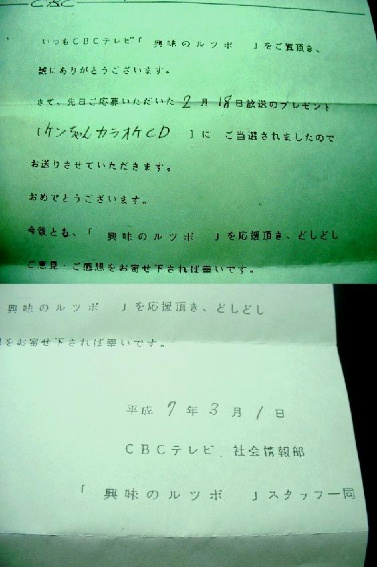 CBC
いつもCBCテレビ「 興味のルツボ 」をご覧頂き、
誠にありがとうございます。
さて、先日ご応募いただいた 2月 18日放送のプレゼント
[ケンちゃんカラオケCD ]に ご当選されましたので
お送りさせていただきます。
おめでとうございます。
今後とも、「 興味のルツボ 」を応援頂き、どしどし
ご意見・ご感想をお寄せ下されば幸いです。
興味のルツボ 」を応援頂き、どしどし
をお寄せ下されば幸いです。
平成 7 年 3 月 1 日
CBCテレビ 社会情報部
「 興味のルツボ 」スタッフ一同